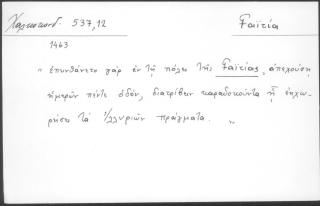 Χαλκοκονδ. 537,12 Γαϊτία
1463
" ἐπυνθάνετο γὰρ ἐν τῇ πόλει τῆς Γαϊτίας, ἀπεχούσῃ
ἡμερῶν πέντε ὁδόν, διατρίβειν καραδοκοῦντα ᾗ
ρήσει τὰ Ἰλλυριῶν πράγματα. "